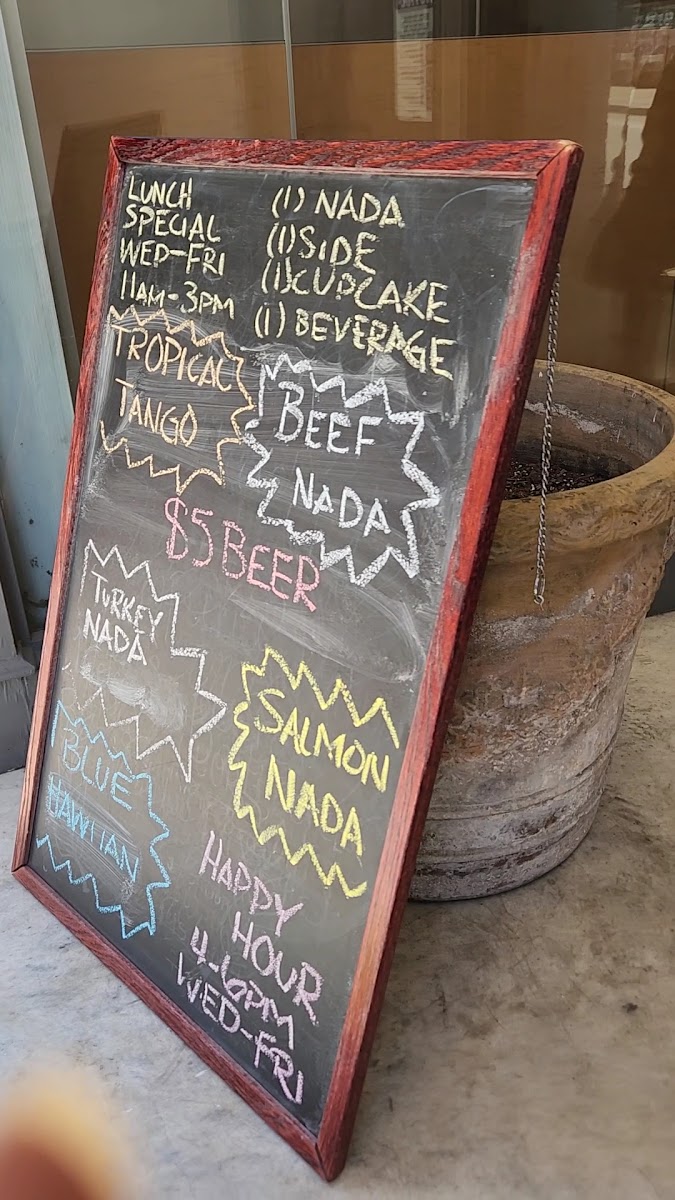 LUNCH
SPECIAL
WED-FRI
11AM-3PM
(1) NADA
(1) SIDE
(1) CUPCAKE
(1) BEVERAGE
TROPICAL
TANGO
BEEF
NADA
$5 BEER
TURKEY
NADA
SALMON
NADA
BLUE
HAWIIAN
HAPPY
HOUR
4-6PM
WED-FRI